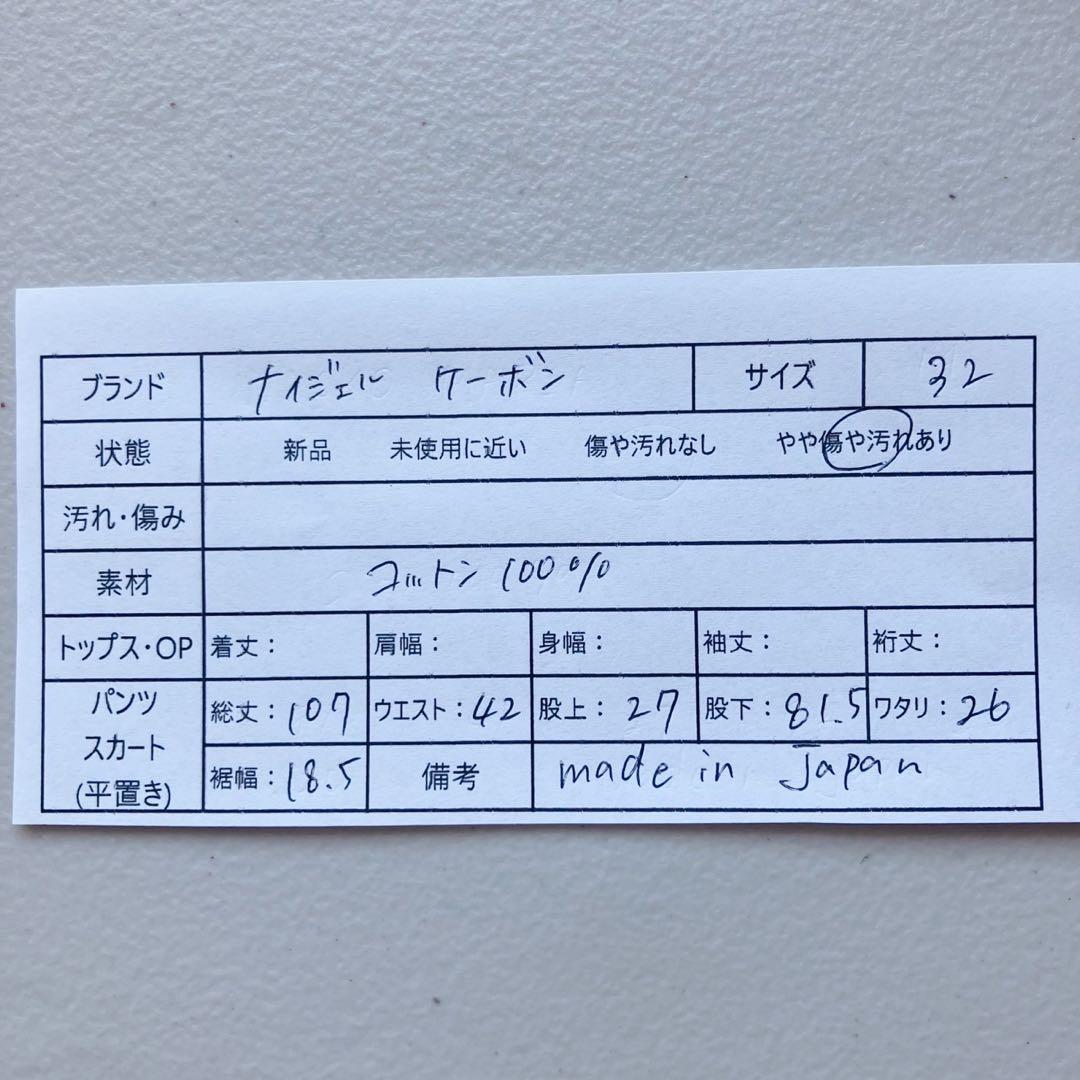 ブランド ナイジェル ケーボン サイズ 32
状態 新品 未使用に近い 傷や汚れなし やや傷や汚れあり
汚れ・傷み
素材 コットン 100%
トップス・OP 着丈: 肩幅: 身幅: 袖丈: 裄丈:
パンツ スカート (平置き) 総丈:107 ウエスト:42 股上:27 股下:81.5 ワタリ:26
裾幅:18.5 備考 made in Japan